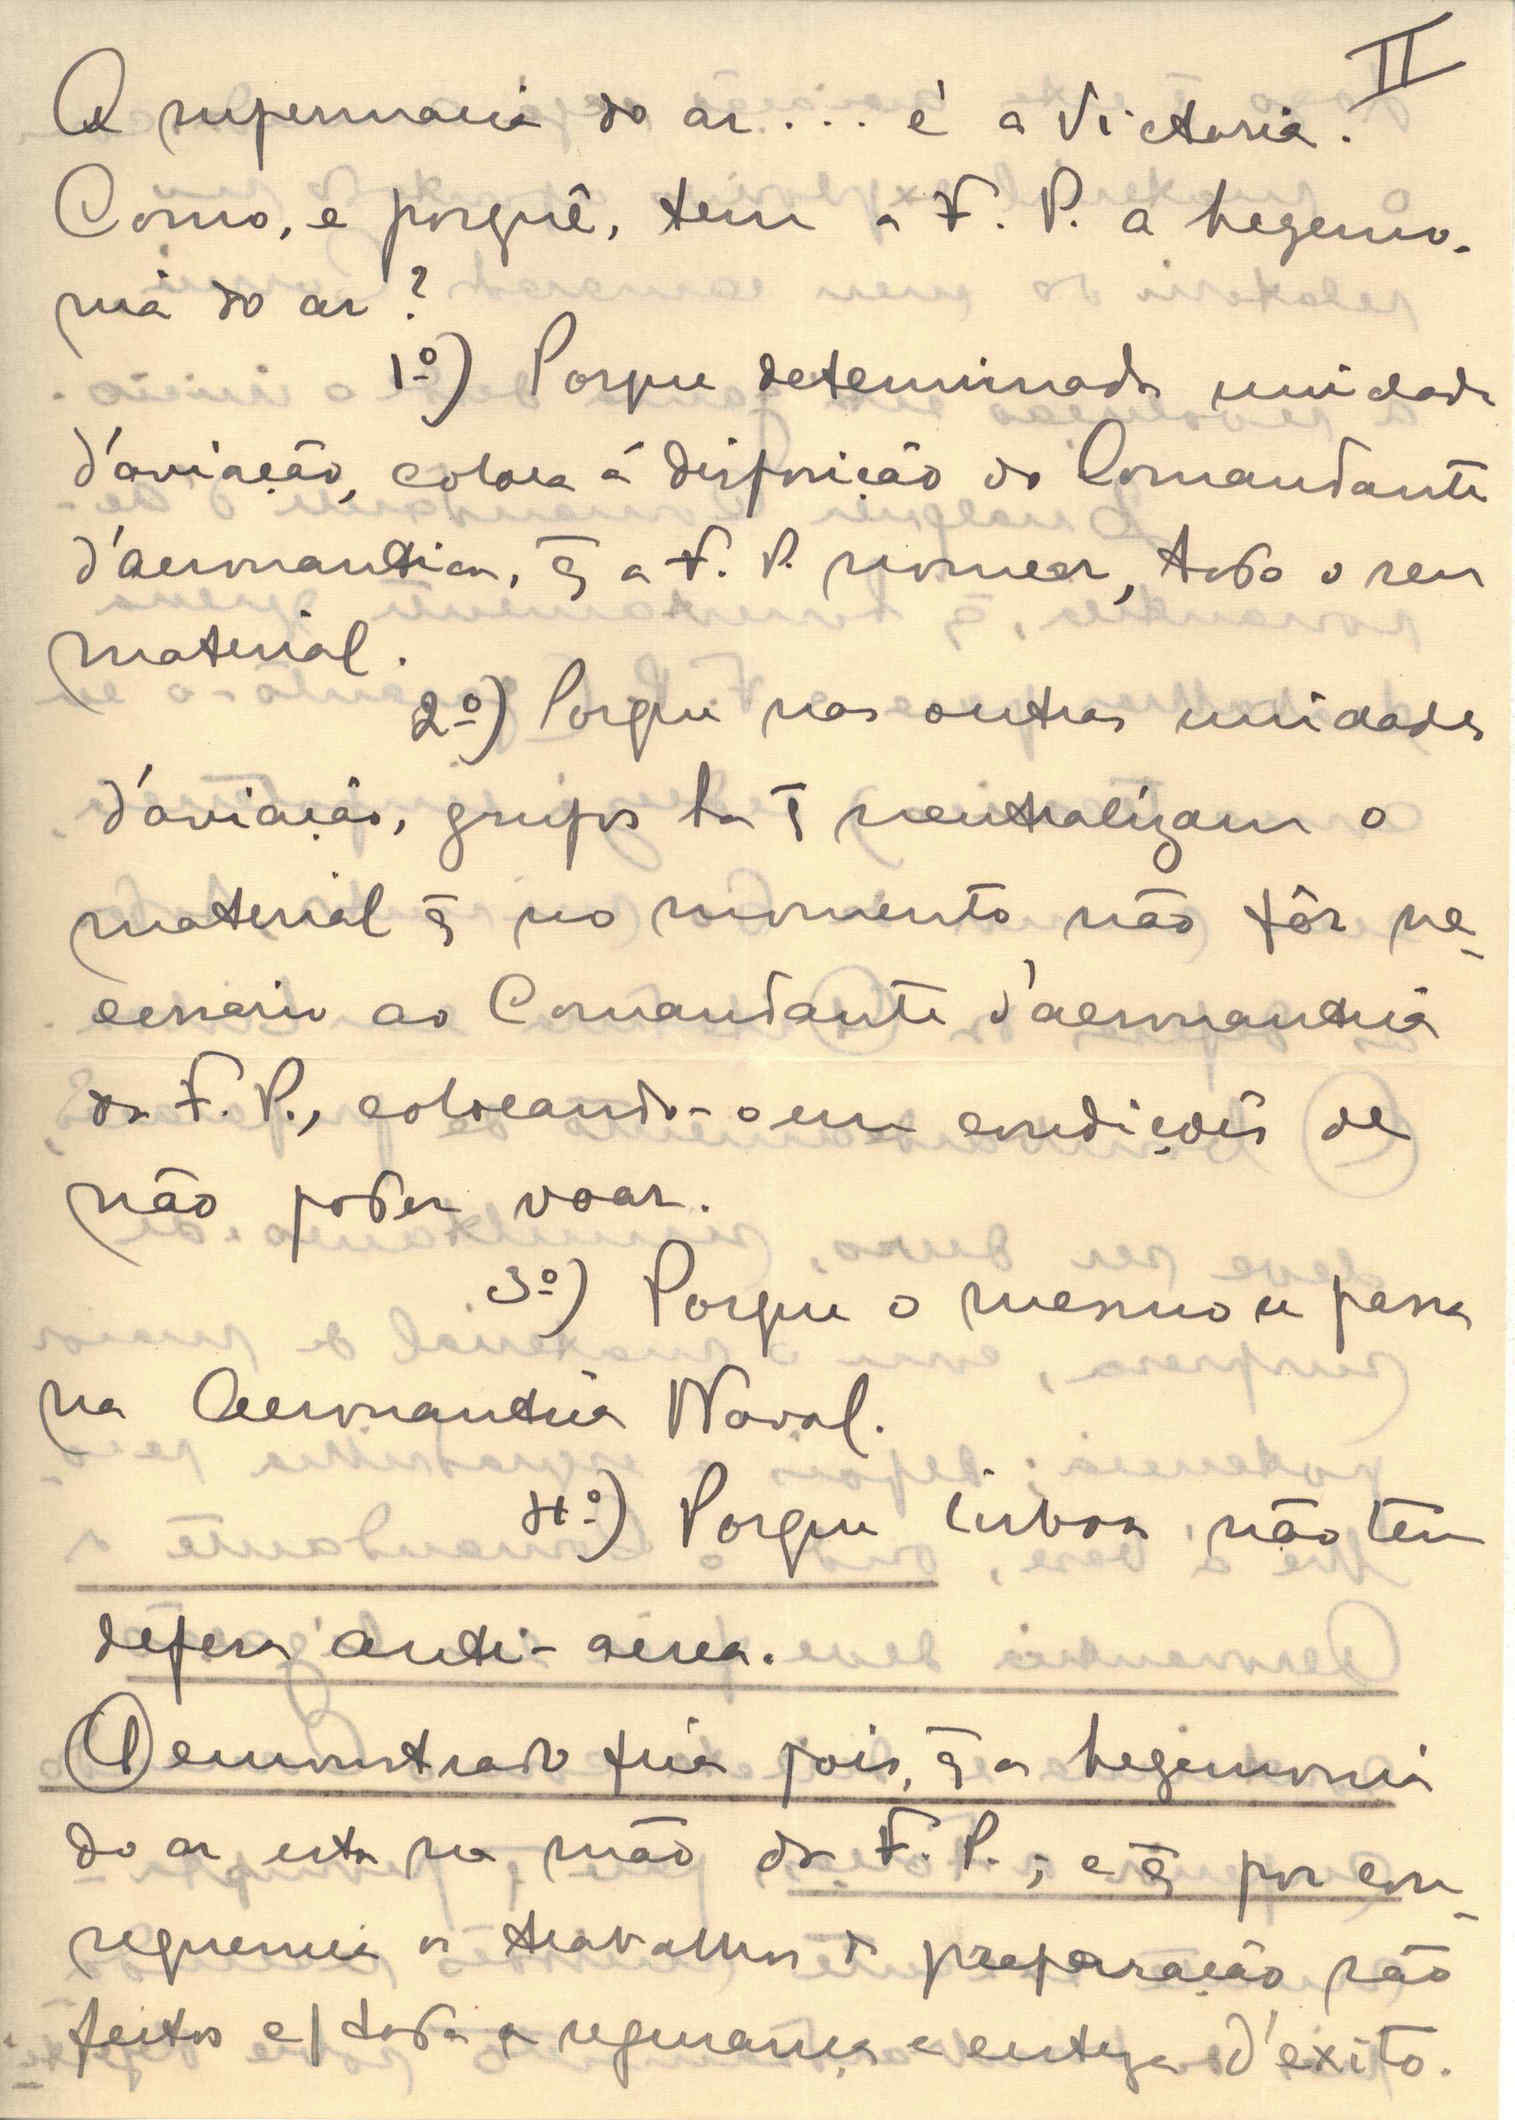 II
A supermacia do ar... é a Victoria.
Como, e porquê, tem a F. P. a hegemo-
nia do ar?
1º) Porque determinada unidade
d'aviação, coloca á disposição do Comandante
d'aeronautica, q̄ a F. P. nomear, todo o seu
material.
2º) Porque nas outras unidades
d'aviação, grupos ha q̄ neutralizam o
material q̄ no momento não fôr ne-
cessario ao Comandante d'aeronautica
da F. P., colocando-o em condições de
não poder voar.
3º) Porque o mesmo se passa
na Aeronautica Naval.
4º) Porque Lisboa não tem
defesa anti-aérea.
Demonstrado fica pois, q̄ a hegemonia
do ar esta na mão da F. P.; e q̄ por con-
sequencia os trabalhos de preparação são
feitos c/ toda a segurança e certeza d'exito.